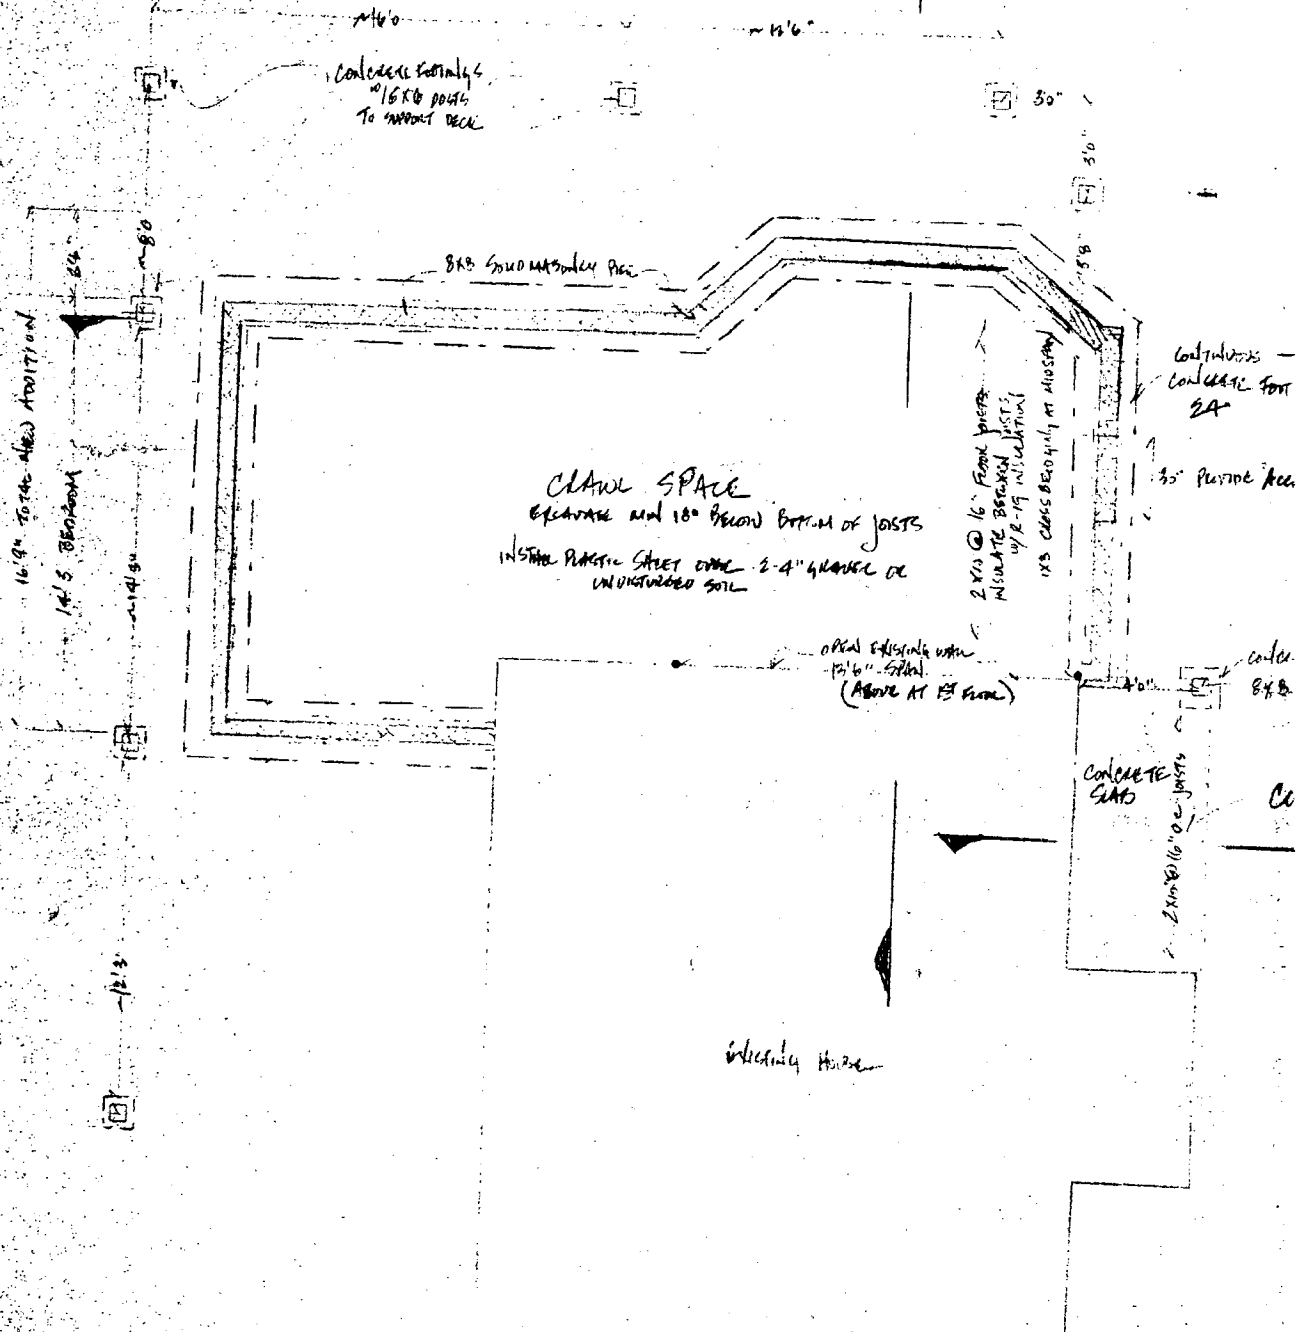 ~16'0
~13'6"
CONCRETE FOOTINGS
W/6X6 POSTS
TO SUPPORT DECK
3'0"
3'0"
~8'0
8X8 SOLID MASONRY PIER
3'8"
16'9" TOTAL NEW ADDITION
14'3 BEDROOM
~14'3"
CONTINUOUS
CONCRETE FOOT
24"
CRAWL SPACE
EXCAVATE MIN 18" BELOW BOTTOM OF JOISTS
INSTALL PLASTIC SHEET OVER 2-4" GRAVEL OR
UNDISTURBED SOIL
2X10 @ 16" FLOOR JOISTS
INSULATE BETWEEN JOISTS
W/ R-19 INSULATION
1X3 CROSS BRIDGING AT MIDSPAN
PROVIDE ACC
OPEN EXISTING WALL
13'6" SPAN
(ABOVE AT 1ST FLOOR)
4'0"
CONC
8X8
CONCRETE
SLAB
CO
2X10 @ 16" OC JOISTS
~12'3"
EXISTING HOUSE